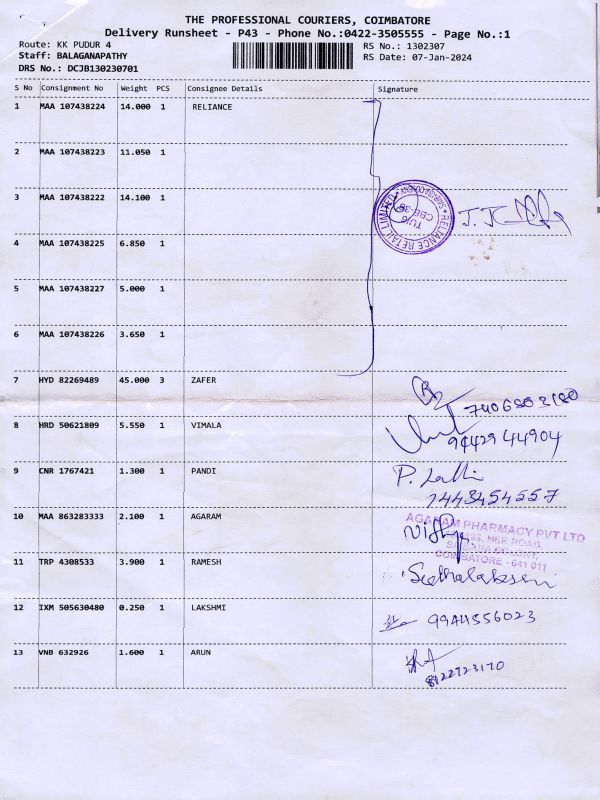 THE PROFESSIONAL COURIERS, COIMBATORE
Delivery Runsheet - P43 - Phone No.:0422-3505555 - Page No.:1
Route: KK PUDUR 4 RS No.: 1302307
Staff: BALAGANAPATHY RS Date: 07-Jan-2024
DRS No.: DCJB130230701
S No Consignment No Weight PCS Consignee Details Signature
1 MAA 107438224 14.000 1 RELIANCE
2 MAA 107438223 11.050 1
3 MAA 107438222 14.100 1
RELIANCE RETAIL LIMITED
CBE-38
4 MAA 107438225 6.850 1
5 MAA 107438227 5.000 1
6 MAA 107438226 3.650 1
7 HYD 82269489 45.000 3 ZAFER
8 HRD 50621809 5.550 1 VIMALA
9442944904
9 CNR 1767421 1.300 1 PANDI
10 MAA 863283333 2.100 1 AGARAM
AGARAM PHARMACY PVT LTD
COIMBATORE - 641 011
11 TRP 4308533 3.900 1 RAMESH
12 IXM 505630480 0.250 1 LAKSHMI
9944556023
13 VNB 632926 1.600 1 ARUN